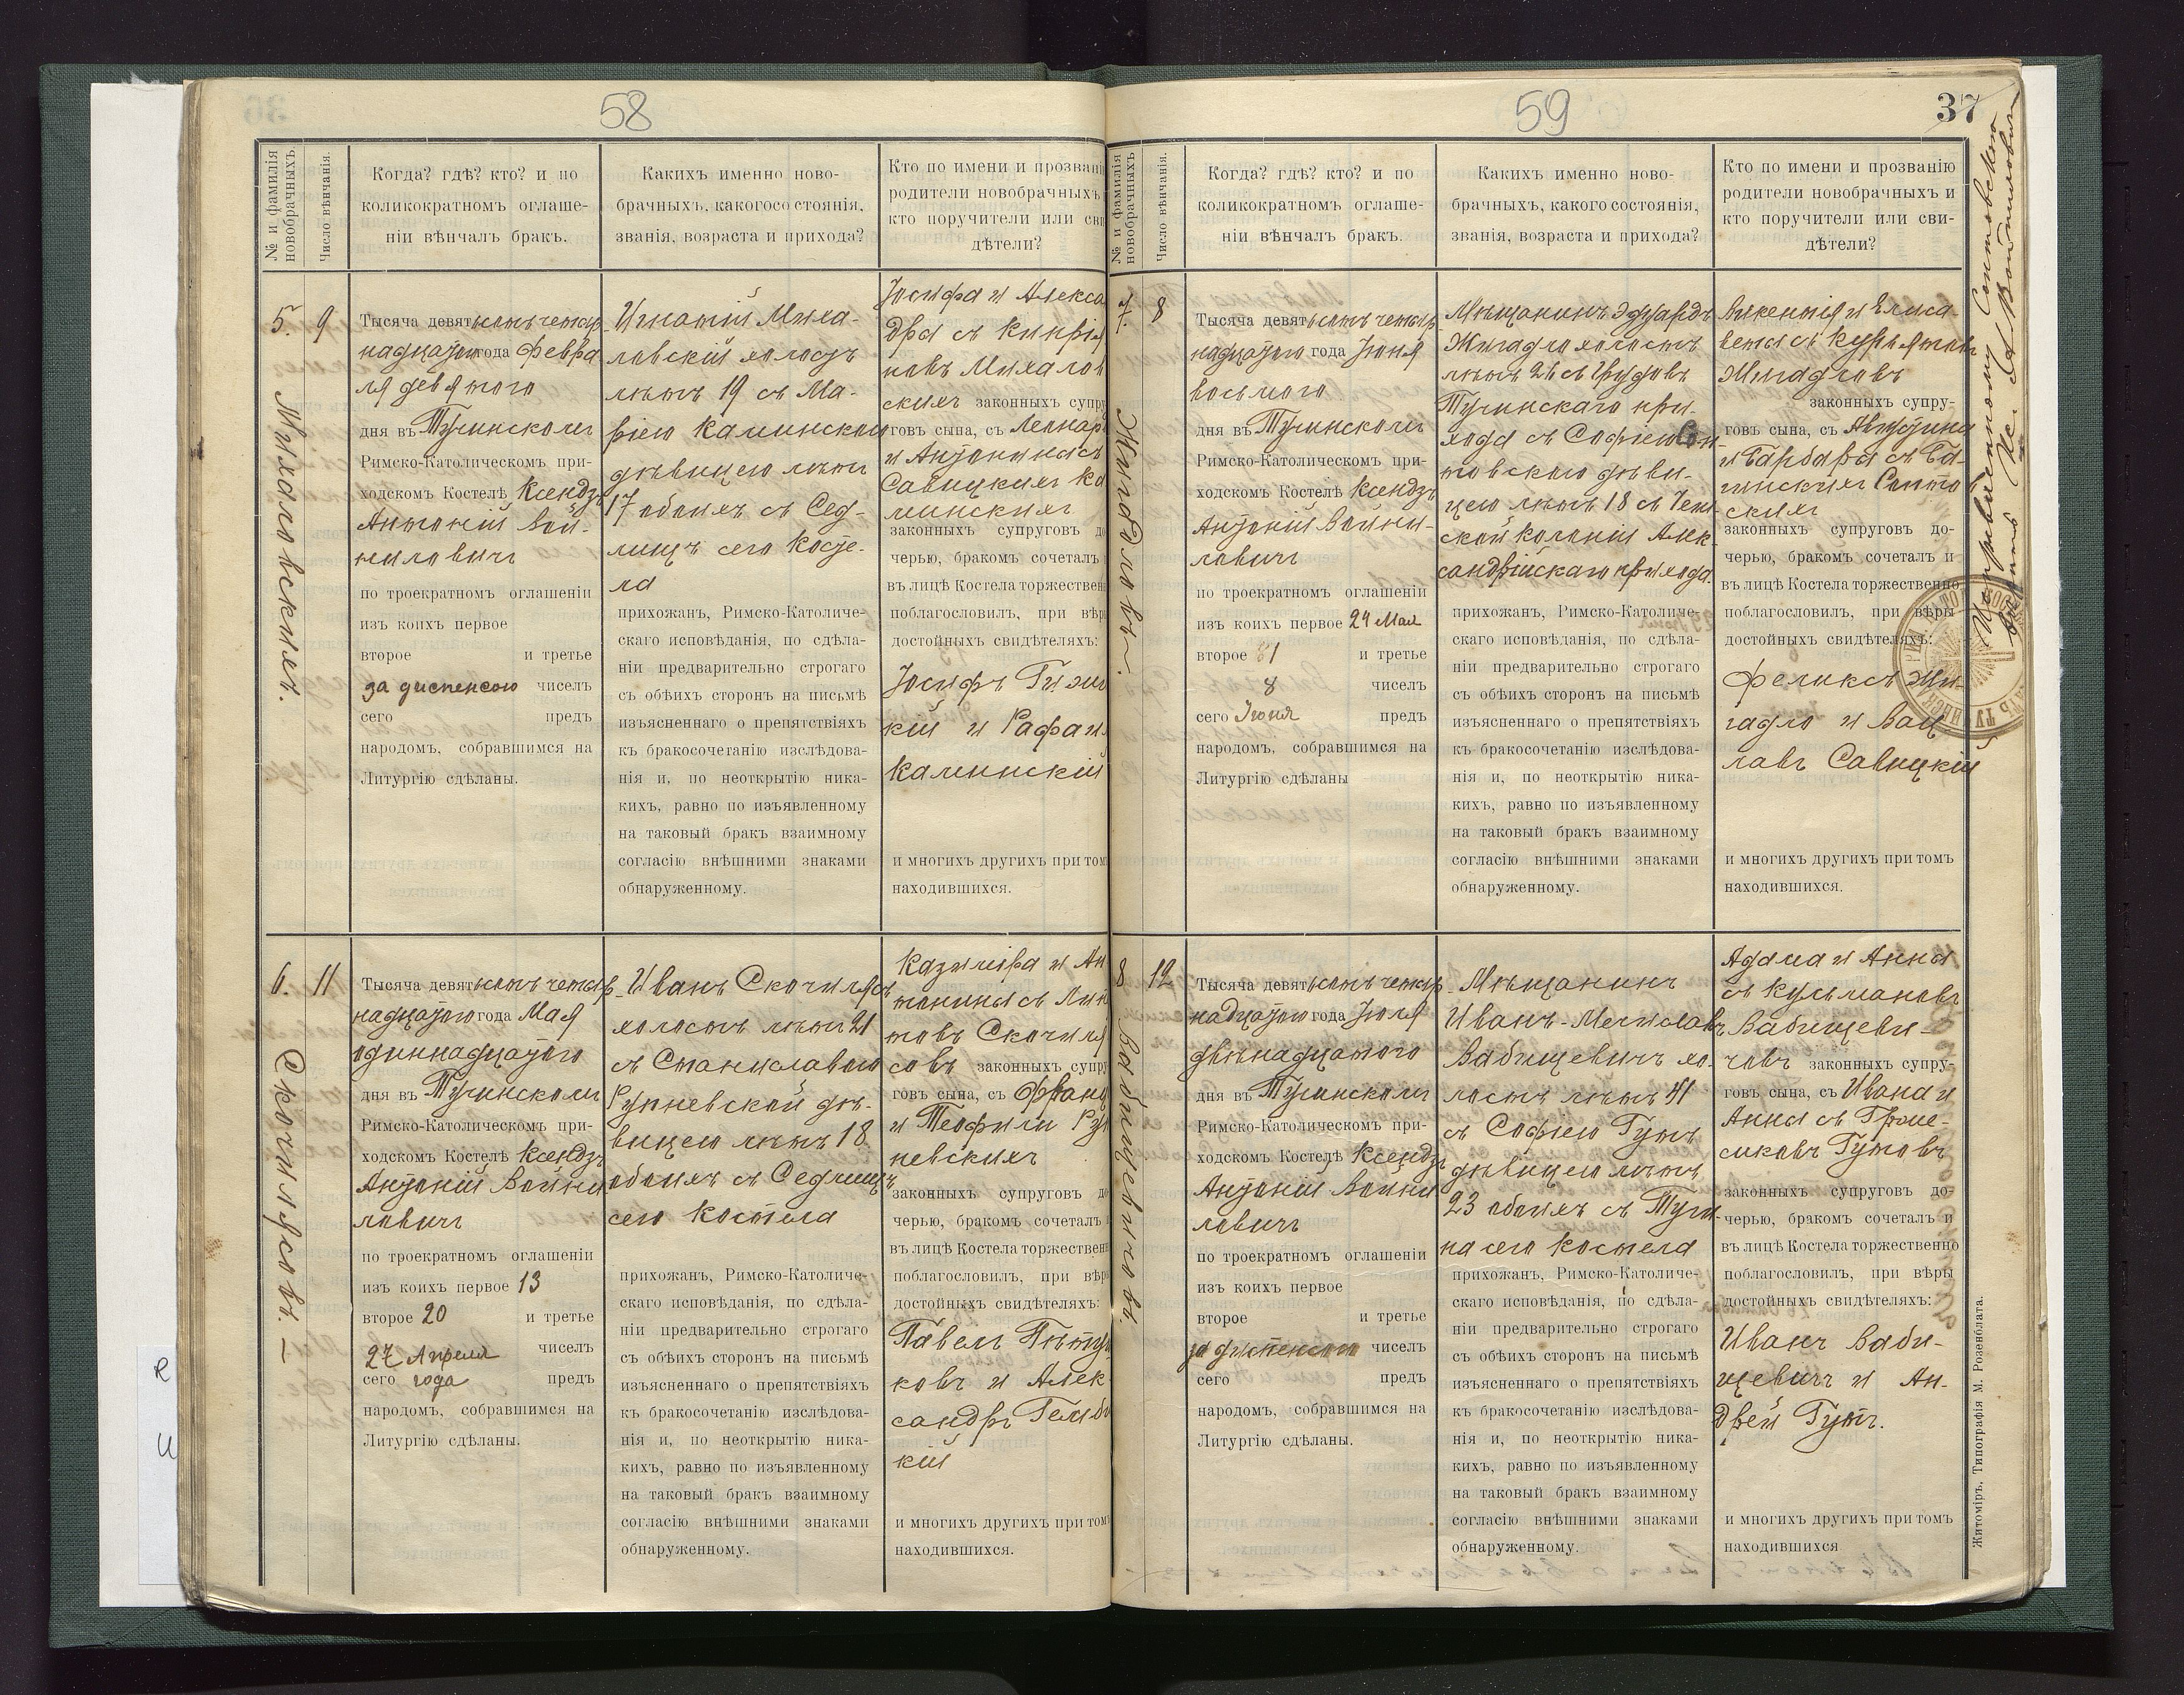 58
№ и фамилія
новобрачныхъ.
Число вѣнчанія.
Когда? гдѣ? кто? и по
коликократномъ оглаше-
ніи вѣнчалъ бракъ.
Какихъ именно ново-
брачныхъ, какогосо стоянія,
званія, возраста и прихода?
Кто по имени и прозвані
родители новобрачныхъ
кто поручители или сви
дѣтели?
5.
Михаловскихъ.
9
Тысяча девятьсотъ четыр-
надцатого года Февра
ля девятого
дня въ Тучинскомъ
Римско-Католическомъ при-
ходскомъ Костелѣ Ксендзъ
Антоній Вой-
ниловичъ
по троекратномъ оглашеніи
изъ коихъ первое
второе и третье
за диспенсою чиселъ
сего предъ
народомъ, собравшимся на
Литургію сдѣланы.
Игнатій Миха-
ловскій холостъ
лѣтъ 19 съ Ма-
ріею Каминской
дѣвицею лѣтъ
17 обоихъ съ Сед-
лищъ сего Косте-
ла
прихожанъ, Римско-Католиче-
скаго исповѣданія, по сдѣла-
ніи предварительно строгаго
съ обѣихъ сторонъ на письмѣ
изъясненнаго о препятствіяхъ
къ бракосочетанію изслѣдова-
нія и, по неоткрытію ника-
кихъ, равно по изъявленному
на таковый бракъ взаимному
согласію внѣшними знаками
обнаруженному.
Іосифа и Алекса
дра съ Кипрія
новъ Михалов
скихъ законныхъ супру
говъ сына, съ Леонар
и Антонина съ
Савицкихъ Ка
минскихъ
законныхъ супруговъ до
черью, бракомъ сочеталъ
въ лицѣ Костела торжествен
поблагословилъ, при вѣр
достойныхъ свидѣтеляхъ:
Іосифъ
кій и Рафаи
Каминскій
и многихъ другихъ при том
находившихся.
6.
Скочилясовъ.
11
Тысяча девятьсотъ четыр-
надцатого года Мая
одиннадцатого
дня въ Тучинскомъ
Римско-Католическомъ при-
ходскомъ Костелѣ Ксендзъ
Антоній Войни
ловичъ
по троекратномъ оглашеніи
изъ коихъ первое 13
второе 20 и третье
27 Апреля чиселъ
сего года предъ
народомъ, собравшимся на
Литургію сдѣланы.
Иванъ Скочилясъ
холостъ лѣтъ 21
съ Станиславою
Рупневской дѣ-
вицею лѣтъ 18
обоихъ съ Седлищъ
сего Костела
прихожанъ, Римско-Католиче-
скаго исповѣданія, по сдѣла-
ніи предварительно строгаго
съ обѣихъ сторонъ на письмѣ
изъясненнаго о препятствіяхъ
къ бракосочетанію изслѣдова-
нія и, по неоткрытію ника-
кихъ, равно по изъявленному
на таковый бракъ взаимному
согласію внѣшними знаками
обнаруженному.
Казиміра и Ан
тонины съ
товъ Скочиля
совъ законныхъ супру
говъ сына, съ Франц
и Теофили
невскихъ
законныхъ супруговъ до
черью, бракомъ сочеталъ
въ лицѣ Костела торжествен
поблагословилъ, при вѣр
достойныхъ свидѣтеляхъ:
Павелъ Пѣту
ховъ и Алек
сандръ Гемби
кій
и многихъ другихъ при том
находившихся.
59
37
№ и фамилія
новобрачныхъ
Число вѣнчанія.
Когда? гдѣ? кто? и по
коликократномъ оглаше-
ніи вѣнчалъ бракъ.
Какихъ именно ново-
брачныхъ, какого состоянія,
званія, возраста и прихода?
Кто по имени и прозванію
родители новобрачныхъ и
кто поручители или сви-
дѣтели?
7.
Жигадловъ.
8
Тысяча девятьсотъ четыр-
надцатого года Іюня
восьмого
дня въ Тучинскомъ
Римско-Католическомъ при-
ходскомъ Костелѣ Ксендзъ
Антоній Войни-
ловичъ
по троекратномъ оглашеніи
изъ коихъ первое 24 Мая
второе 31 и третье
8 чиселъ
сего Іюня предъ
народомъ, собравшимся на
Литургію сдѣланы
Мѣщанинъ Эдуардъ
Жигадло холостъ
лѣтъ 26 съ Грудовъ
Тучинскаго при-
хода съ Софіею Сон-
товскою дѣви-
цею лѣтъ 18 съ Чеш-
ской колоніи Алек-
сандрійскаго прихода.
прихожанъ, Римско-Католиче-
скаго исповѣданія, по сдѣла-
ніи предварительно строгаго
съ обѣихъ сторонъ на письмѣ
изъясненнаго о препятствіяхъ
къ бракосочетанію изслѣдова-
нія и, по неоткрытію ника-
кихъ, равно по изъявленному
на таковый бракъ взаимному
согласію внѣшними знаками
обнаруженному.
Викентія и Елиса-
веты съ Курьятовъ
Жигадловъ
законныхъ супру-
говъ сына, съ Августина
и Барбары съ Ба-
гинскихъ Сонтов
скихъ
законныхъ супруговъ до-
черью, бракомъ сочеталъ и
въ лицѣ Костела торжественно
поблагословилъ, при вѣры
достойныхъ свидѣтеляхъ:
Феликсъ Жи-
гадло и Вац
лавъ Савицкій
и многихъ другихъ при томъ
находившихся.
8
Вабищевичовъ.
12
Тысяча девятьсотъ четыр-
надцатого года Іюля
двѣнадцатого
дня въ Тучинскомъ
Римско-Католическомъ при-
ходскомъ Костелѣ Ксендзъ
Антоній Войни
ловичъ
по троекратномъ оглашеніи
изъ коихъ первое
второе и третье
за диспенсою чиселъ
сего предъ
народомъ, собравшимся на
Литургію сдѣланы.
Мѣщанинъ
Иванъ-Мечиславъ
Вабищевичъ хо-
лостъ лѣтъ 41
съ Софіею Гутъ
дѣвицею лѣтъ
23 обоихъ съ Тучи-
на сего Костела
прихожанъ, Римско-Католиче-
скаго исповѣданія, по сдѣла-
ніи предварительно строгаго
съ обѣихъ сторонъ на письмѣ
изъясненнаго о препятствіяхъ
къ бракосочетанію изслѣдова-
нія и, по неоткрытію ника-
кихъ, равно по изъявленному
на таковый бракъ взаимному
согласію внѣшними знаками
обнаруженному.
Адама и Анны
съ Кузьмановъ
Вабищеви-
човъ законныхъ супру-
говъ сына, съ Ивана и
Анны съ Гроше-
сиковъ Гутовъ
законныхъ супруговъ до-
черью, бракомъ сочеталъ и
въ лицѣ Костела торжественно
поблагословилъ, при вѣры
достойныхъ свидѣтеляхъ:
Иванъ Ваби-
щевичъ и Ан-
дрей Гутъ.
и многихъ другихъ при томъ
находившихся
Исправленному Сонтовскою
вѣрить Кс. А Войниловичъ
Житоміръ. Типографія М. Розенблата.